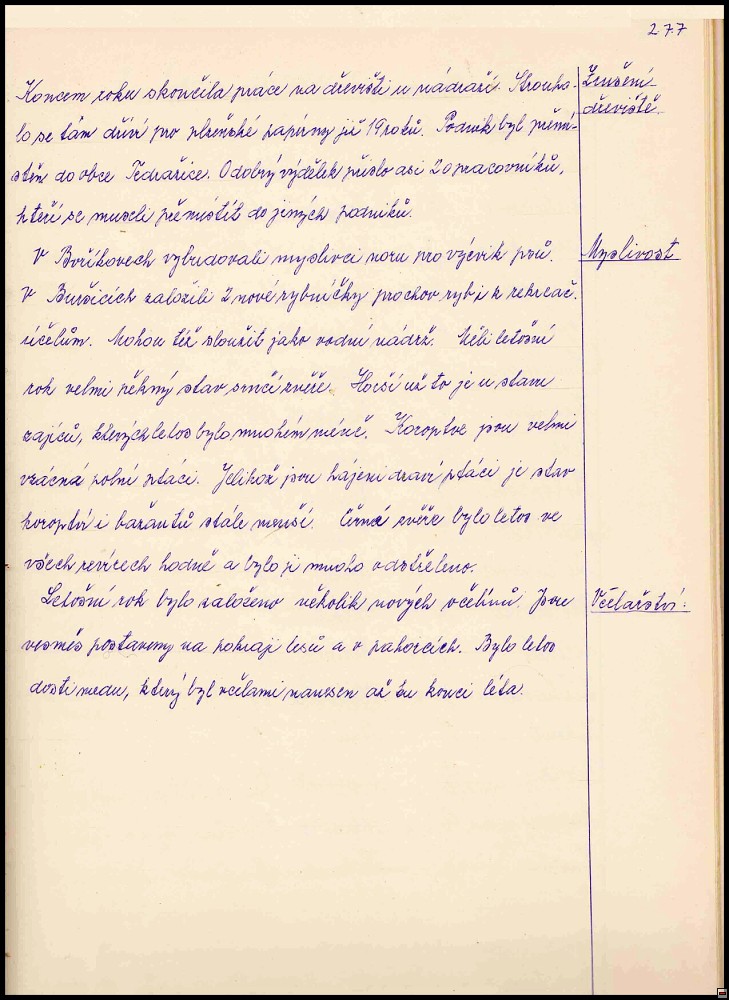 277
Koncem roku skončila práce na dřevišti u nádraží. Strouha-
lo se tam dříví pro plzeňské papírny již 19 roků. Podnik byl přemí-
stěn do obce Pedražice. O dobrý výdělek přišlo asi 20 pracovníků,
kteří se museli přemístit do jiných podniků.
Zrušení
dřeviště.
V Boříkovech vybudovali myslivci noru pro výcvik psů.
V Buršicích založili 2 nové rybníčky pro chov ryb i k rekreač.
účelům. Mohou též sloužit jako vodní nádrž. Měli letošní
rok velmi pěkný stav srnčí zvěře. Horší už to je u stavu
zajíců, kterých letos bylo mnohem méně. Koroptve jsou velmi
vzácná polní ptáci. Jelikož jsou hájeni draví ptáci je stav
koroptví i bažantů stále menší. Černé zvěře bylo letos ve
všech revírech hodně a bylo jí mnoho odstřeleno.
Myslivost
Letošní rok bylo založeno několik nových včelínů. Jsou
vesměs postaveny na pokraji lesů a v pahorcích. Bylo letos
dosti medu, který byl včelami nanesen až ku konci léta.
Včelařství: